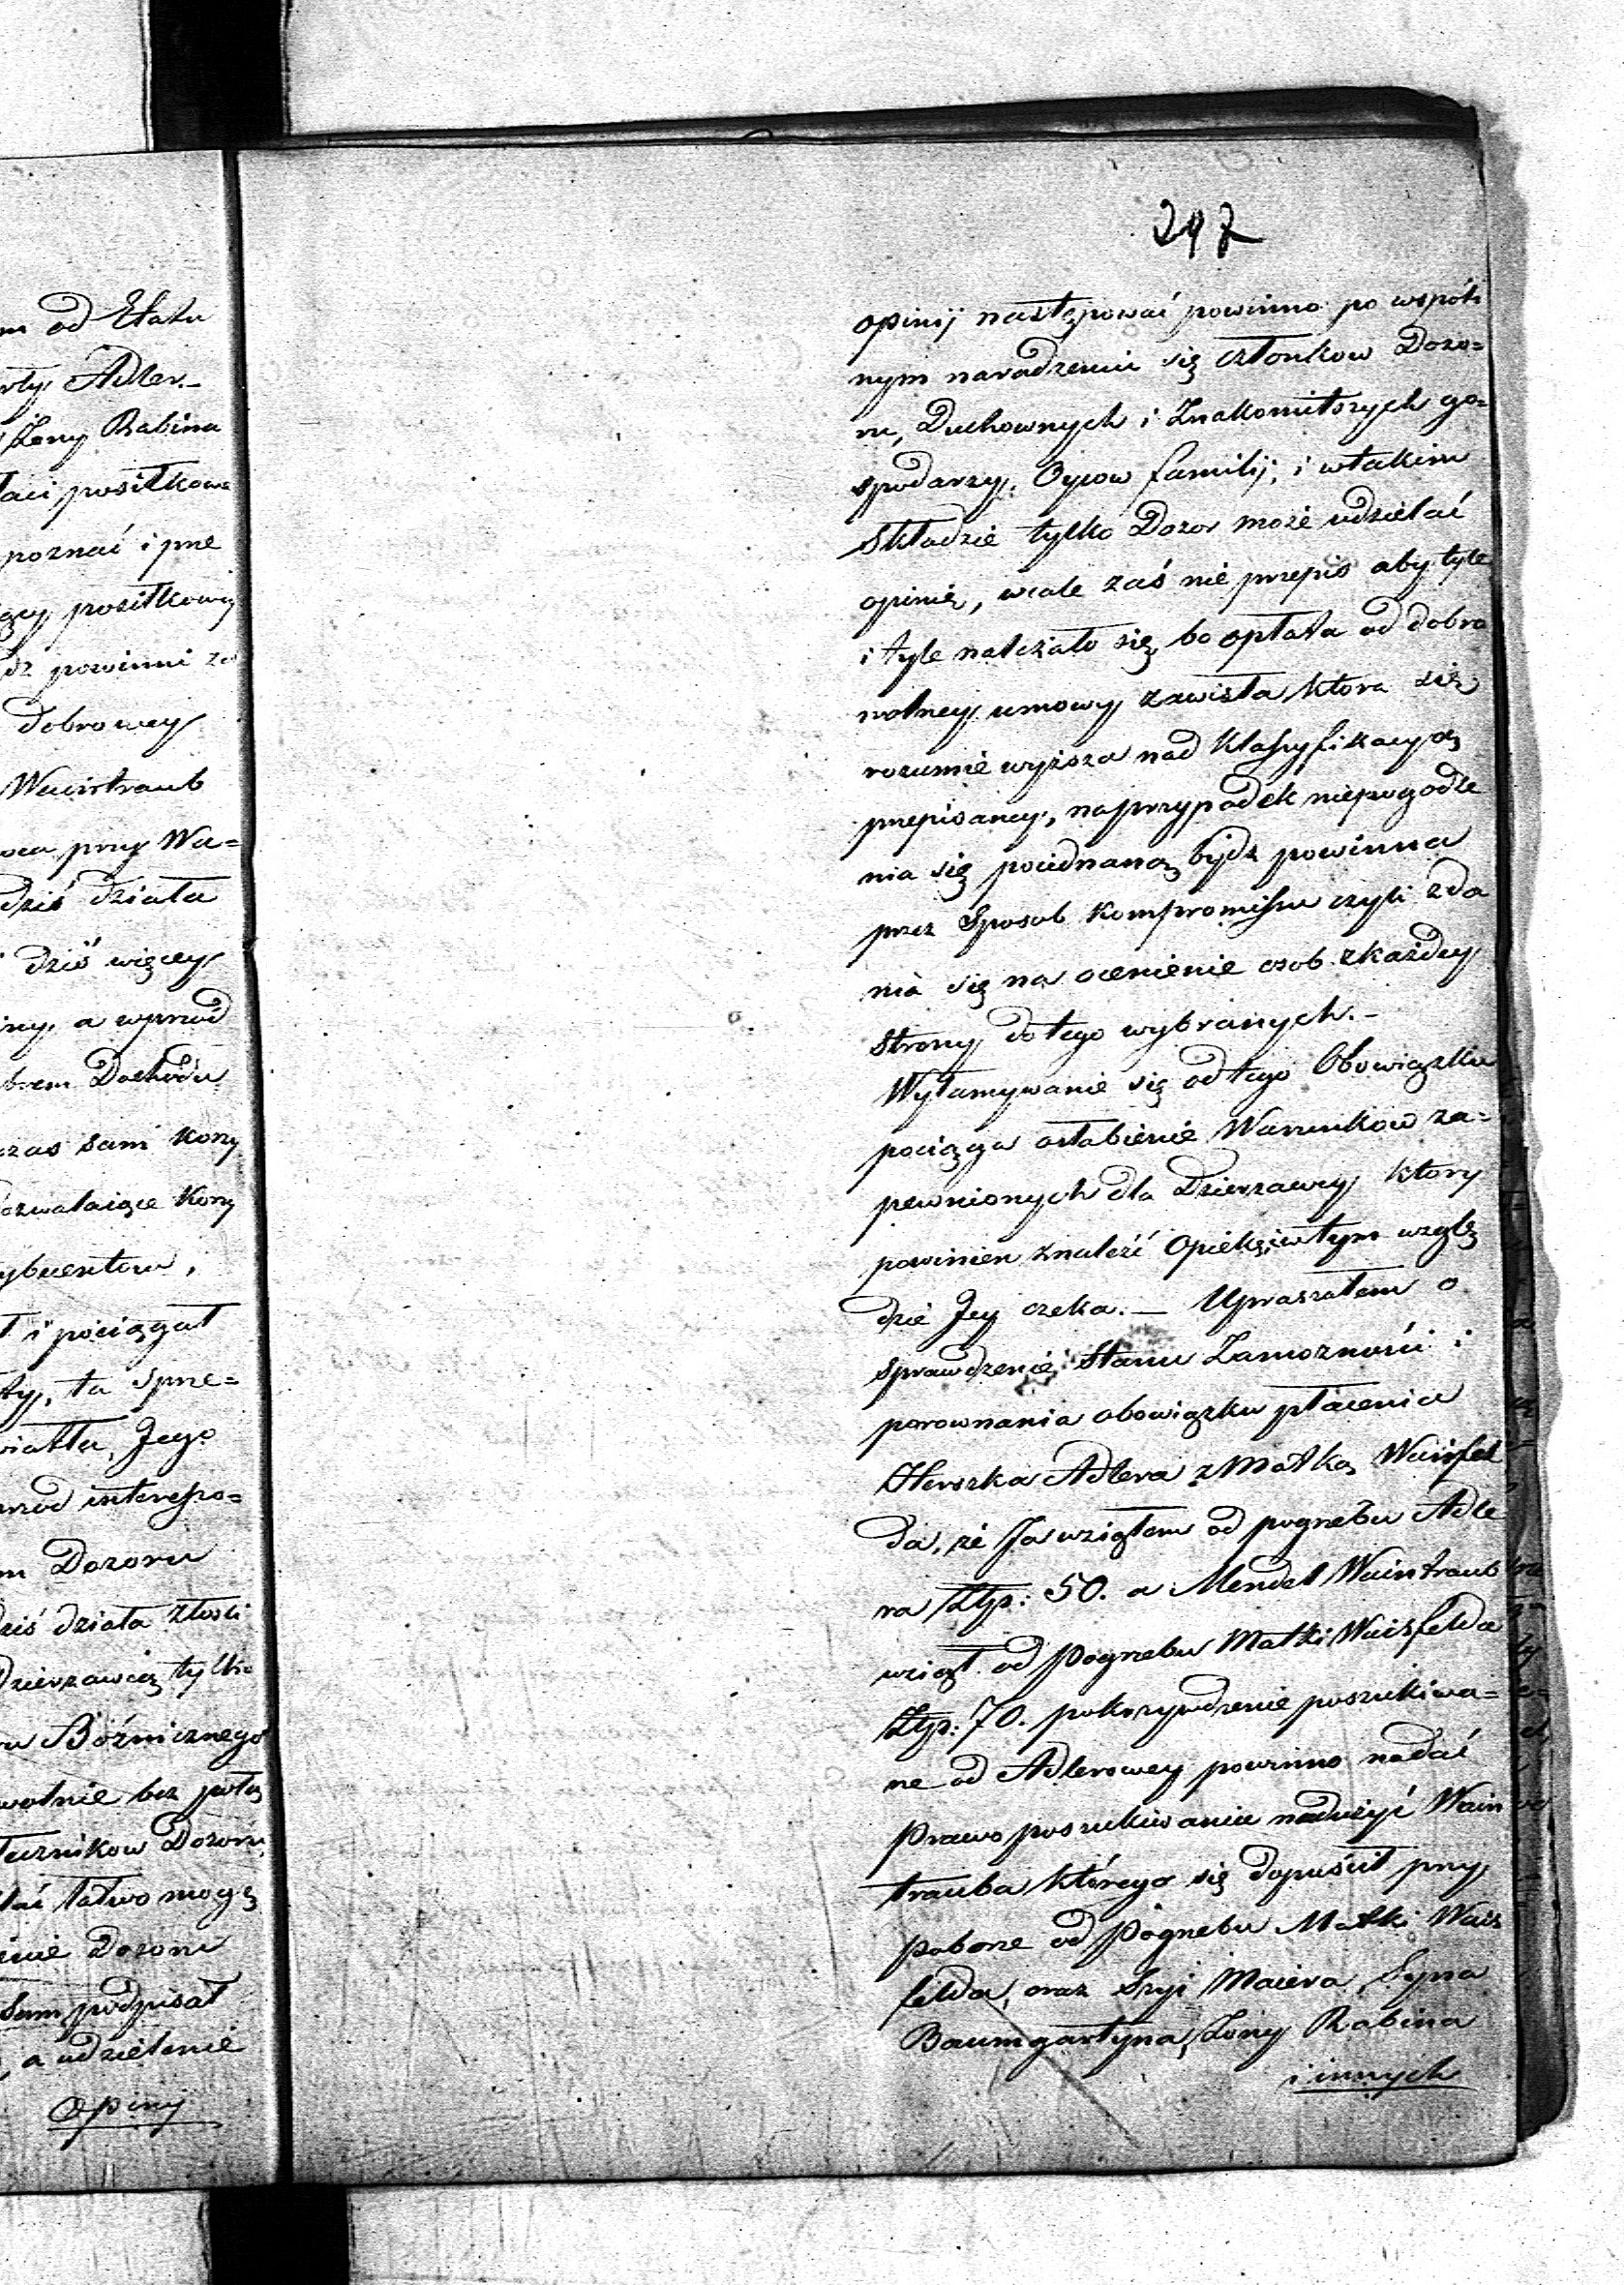 m od Etatu
rty Adler.-
Zony Rabina
łaci posiłkowa
poznać i prze
ący posiłkowy
dz powinni za
dobrowey
Waintraub
oca przy Wa=
dziś działa
dziś więcey
iny, a wprzód
brem Dochodu
czas sam Korzy
ozwalaiące Korzy
ybuentow,
ł i pociągał
ty, ta sprze=
wiatła, Jego
przod interesso=
m Dozoru
dziś działa złości
Dzierzawcą tylko
u Bóżnicznego
wolnie bez
łecznikow Dozoru,
łać łatwo mogą
enie Dozoru
Sam podpisał
, a udzielenie
Opinij
297
opinij następować powinno po wspól
nym naradzeniu się członkow Dozo=
ru, Duchownych i Znakomitszych go=
spodarzy, Oycow familij; i wtakim
składzie tylko Dozor może udzielać
opinię, wcale zaś nie przepis aby tyle
i tyle należało się, bo opłata od dobro
wolney umowy zawisła ktora się
rozumie wyższa nad Klassyfikacyą
przepisaney, na przypadek niepogodze
nia się poiednaną bydź powinna
przez Sposob Kompromissu czyli zda
nia się na ocenienie osob zkażdey
strony dotego wybranych.-
Wyłamywanie się od tego Obowiązku
pociąga osłabienie Warunkow za=
pewnionych dla Dzierzawcy ktory
powinien znaleźć Opiekę, i wtym wzglę
dzie Jey czeka. — Upraszałem o
sprawdzenie Stanu Zamozności i
porownania obowiązku płacenia
Herszka Adlera z Matką Waisfel
da, że Ja wziąłem od pogrzebu Adle
ra Złp: 50. a Mendel Waintraub
wziął od Pogrzebu Matki Waisfelda
Złp: 70. pokrzywdzenie poszukiwa=
ne od Adlerowey powinno nadać
Prawo poszukiwania nadużyć Wain
trauba którego się dopuścił przy
poborze od Pogrzebu Matki Wais
felda, oraz Sryi Maiera, Syna
Baumgartyna, Zony Rabina
i innych